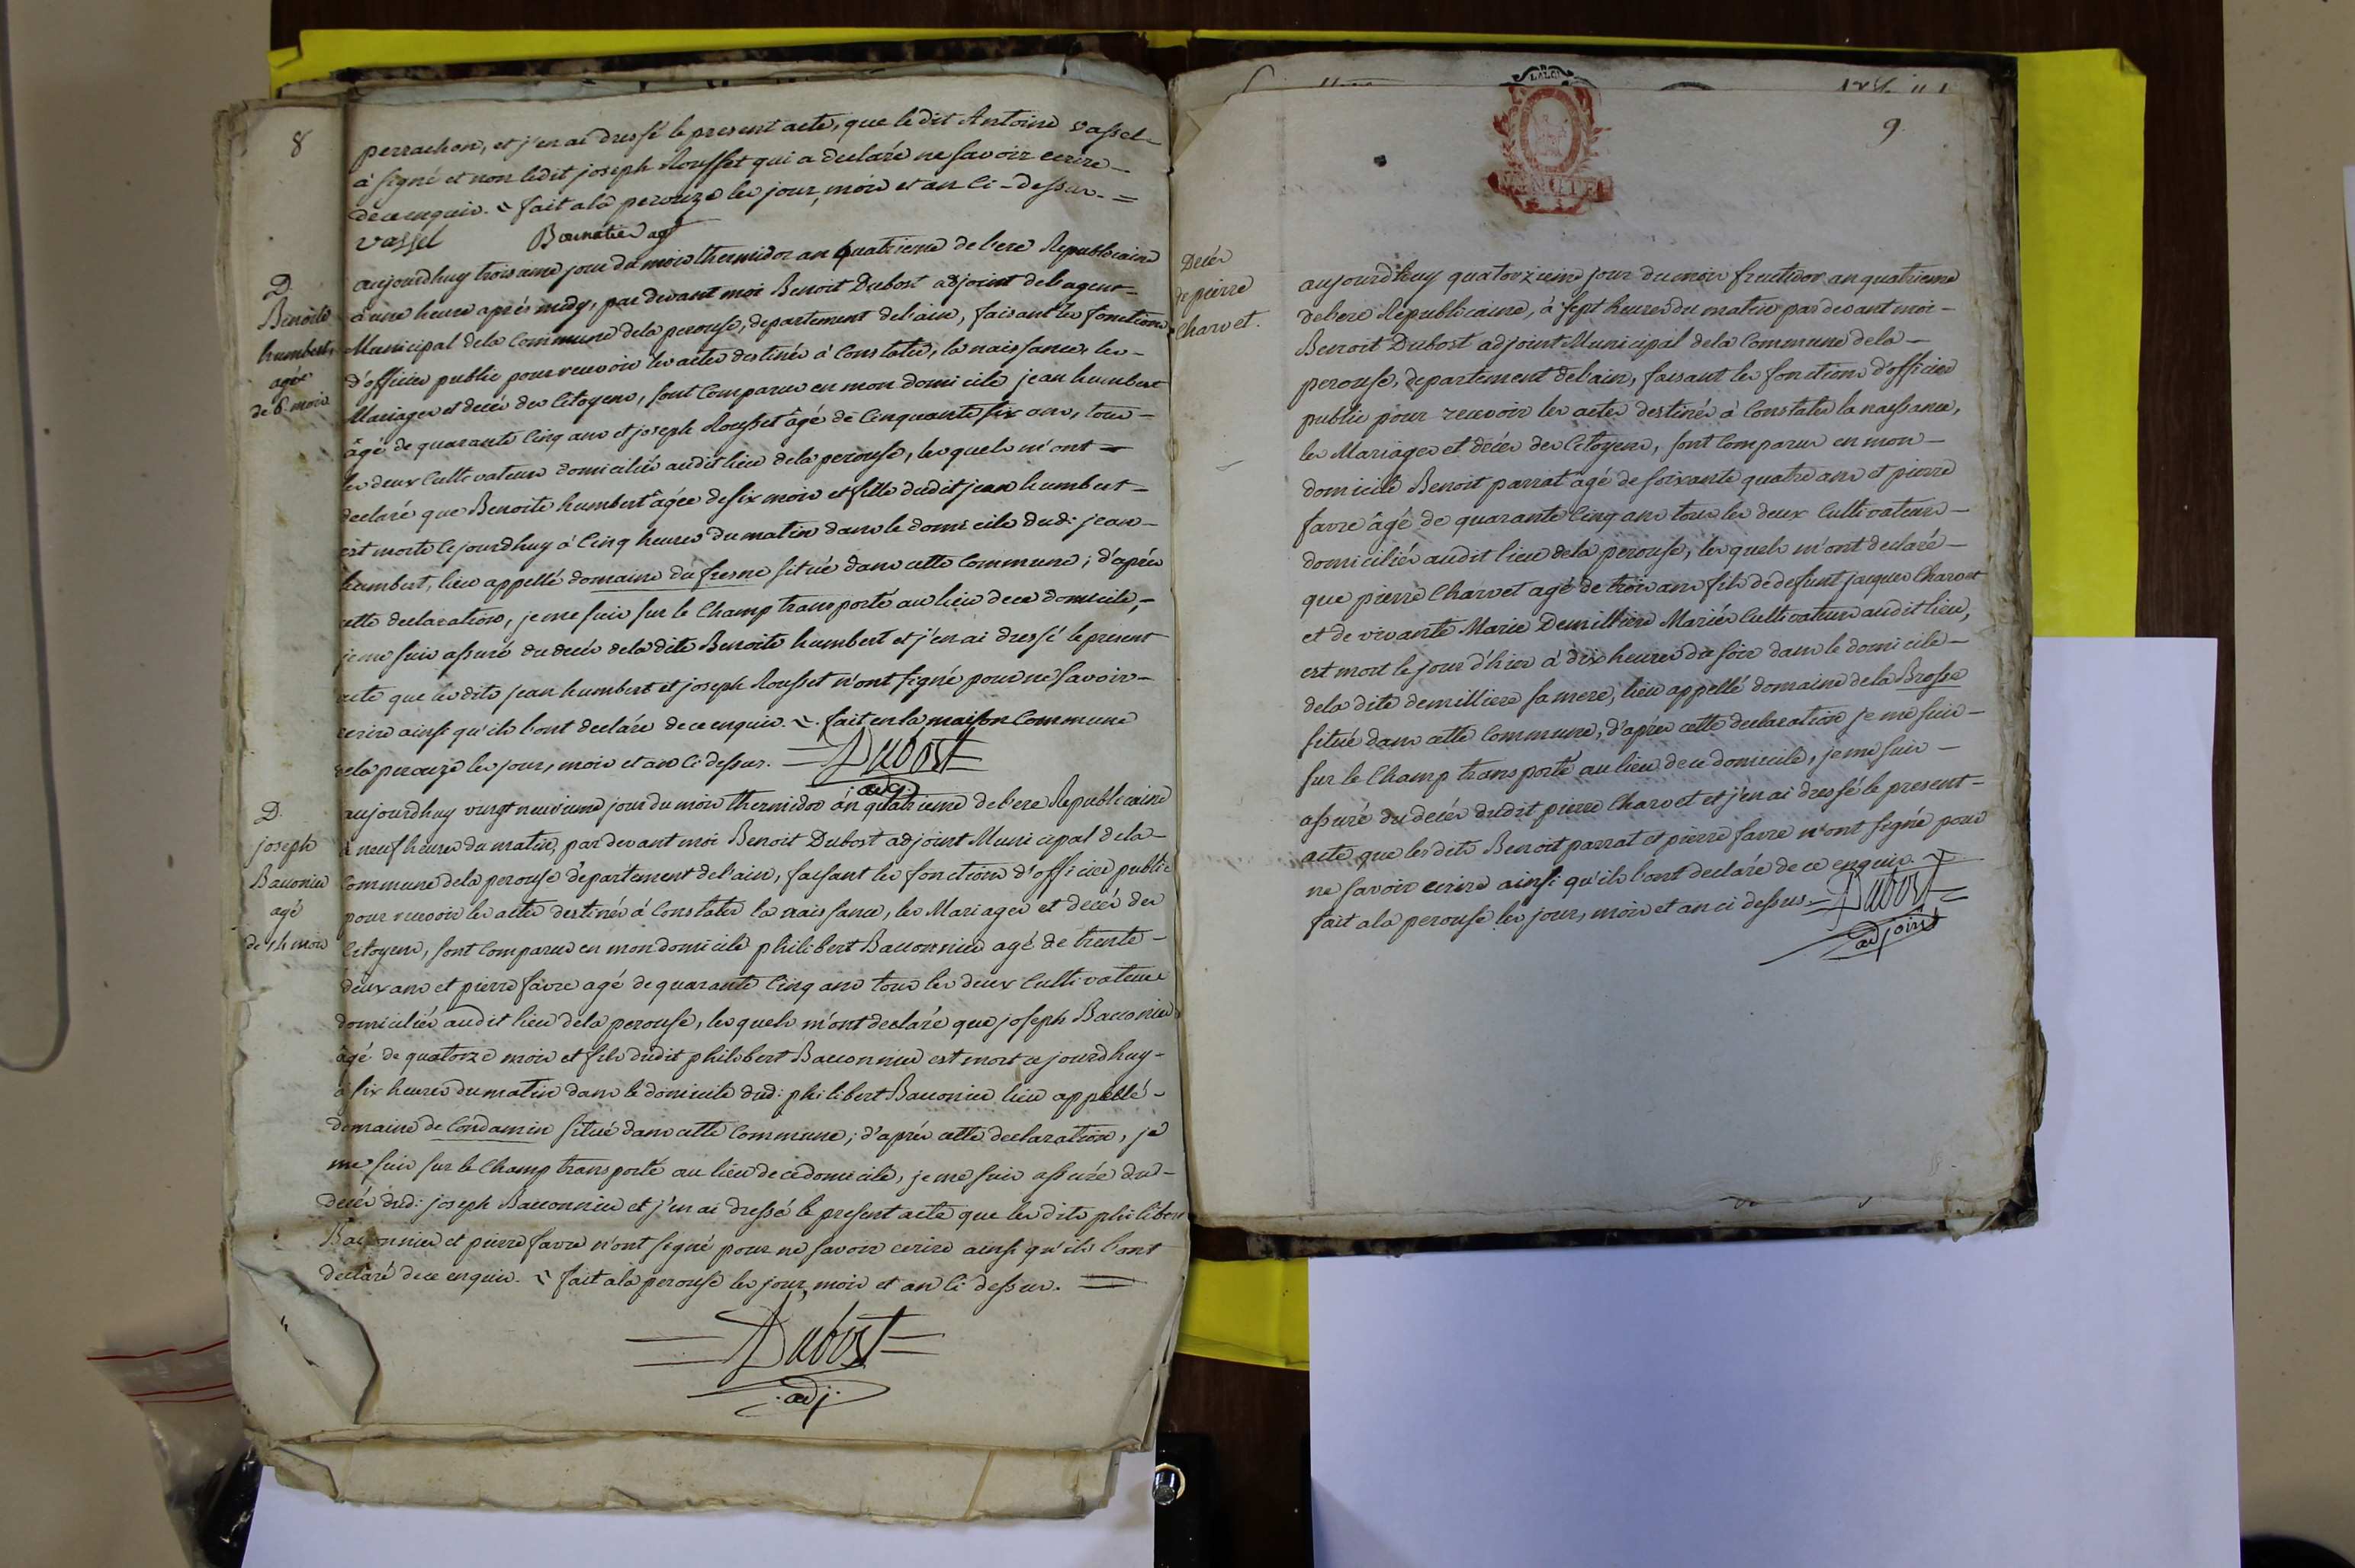 8
perrachon, et j'en ai dressé le present acte, que le dit Antoine Vassel
à signé et non ledit joseph Rousset qui a declaré ne savoir ecrire -
de ce enquis. fait a la perouze les jour, mois et an ci-dessus. =
vassel Bournatier agt
D.
Benoite
humbert,
agée
de 6 mois
aujourdhuy troisieme jour du mois thermidor an quatrieme de l'ere Republicaine
à une heure aprés midy, par devant moi Benoit Dubost adjoint de l'agent -
Municipal de la Commune de la perouse, departement de l'ain, faisant les fonctions
d'officier public pour recevoir les actes destinés à Constater, la naissance, les -
Mariages et decés des Citoyens, sont Comparus en mon domicile jean humbert
âgé de quarante Cinq ans et joseph Rousset âgé de Cinquante six ans, tous -
les deux Cultivateurs domiciliés audit lieu de la perouse, les quels m'ont -
declaré que Benoite humbert âgée de six mois et fille dudit jean humbert -
est morte ce jourdhuy à Cinq heures du matin dans le domicile dud: jean -
humbert, lieu appellé domaine du fresne situé dans cette Commune; d'aprés
cette declaration, je me suis sur le Champ transporté au lieu de ce domicile, -
je me suis assuré du decés de la dite Benoite humbert et j'en ai dressé le present
acte que les dits jean humbert et joseph Rousset n'ont signé pour ne savoir -
ecrire ainsi qu'ils l'ont declaré de ce enquis. fait en la maison Commune
de la perouze les jour, mois et an ci dessus. Dubost
adj.
D.
joseph
Baconnier
agé
de 14 mois
aujourdhuy vingt neuvieme jour du mois thermidor an quatrieme de l'ere Republicaine
à neuf heures du matin, par devant moi Benoit Dubost adjoint Municipal de la -
Commune de la perouse departement de l'ain, faisant les fonctions d'officier public
pour recevoir les actes destinés à Constater la naissance, les Mariages et decés des
Citoyens, sont Comparus en mon domicile philibert Baconnier agé de trente -
deux ans et pierre favre agé de quarante Cinq ans tous les deux Cultivateurs
domiciliés audit lieu de la perouse, les quels m'ont declaré que joseph Baconier
âgé de quatorze mois et fils dudit philibert Baconnier est mort ce jourdhuy -
à six heures du matin dans le domicile dud: philibert Baconier lieu appellé -
domaine de Condamin situé dans cette Commune; d'aprés cette declaration, je
me suis sur le Champ transporté au lieu de ce domicile, je me suis assuré du -
decés dud: joseph Baconnier et j'en ai dressé le present acte que les dits philibert
Baconnier et pierre favre n'ont signé pour ne savoir ecrire ainsi qu'ils l'ont
declaré de ce enquis. fait à la perouse les jour, mois et an Ci dessus. =
Dubost
adj.
9.
Decés
de pierre
Charvet.
aujourdhuy quatorzieme jour du mois fructidor an quatrieme
de l'ere Republicaine, à sept heures du matin par devant moi -
Benoit Dubost adjoint Municipal de la Commune de la -
perouse, departement de l'ain, faisant les fonctions d'officier
public pour recevoir les actes destinés à Constater la naissance,
les Mariages et decés des Citoyens, sont Comparus en mon -
domicile Benoit parrat âgé de soixante quatre ans et pierre
favre âgé de quarante Cinq ans tous les deux Cultivateurs -
domiciliés audit lieu de la perouse, les quels m'ont declaré -
que pierre Charvet agé de trois ans fils de defunt jacques Charvet
et de vivante Marie Demilliere Mariés Cultivateurs audit lieu,
est mort le jour d'hier à dix heures du soir dans le domicile -
de la dite demilliere sa mere, lieu appellé domaine de la Brosse
situé dans cette Commune, d'aprés cette declaration je me suis -
sur le Champ transporté au lieu de ce domicile, je me suis -
assuré du decés dudit pierre Charvet et j'en ai dressé le present -
acte que les dits Benoit parrat et pierre favre n'ont signé pour
ne savoir ecrire ainsi qu'ils l'ont declaré de ce enquis.
fait a la perouse les jour, mois et an ci dessus. Dubost
adjoint